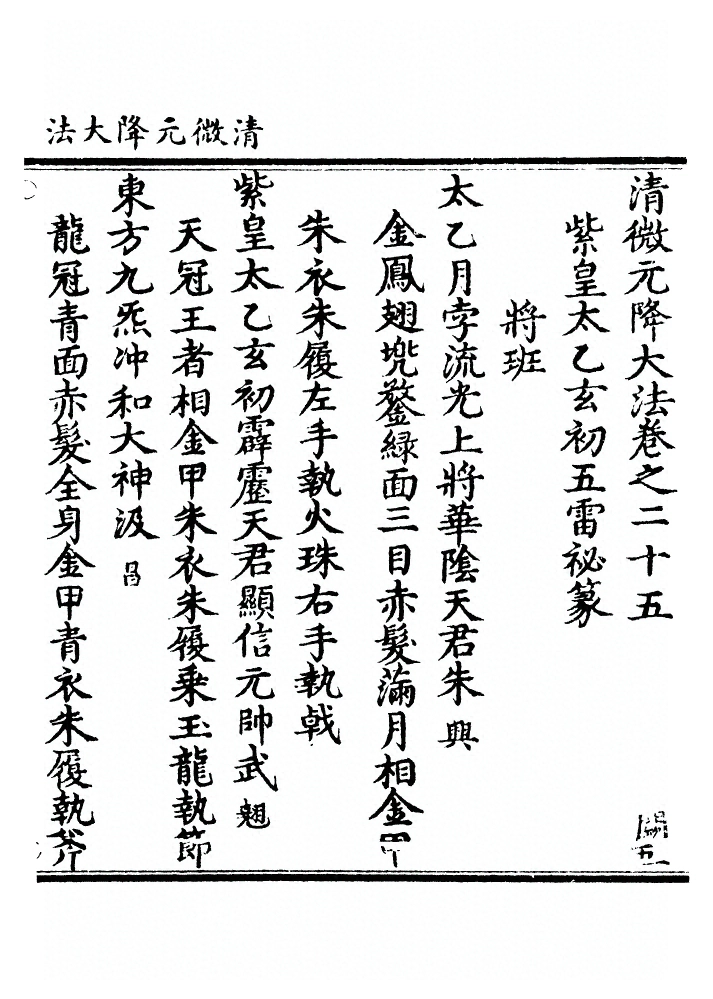 清微元降大法
清微元降大法卷之二十五
紫皇太乙玄初五雷祕篆
將班
太乙月孛流光上將華陰天君朱興
金鳳翅兠鍪綠面三目赤髮滿月相金甲
朱衣朱履左手執火珠右手執戟
紫皇太乙玄初霹靂天君顯信元帥武翹
天冠王者相金甲朱衣朱履乗玉龍執節
東方九炁冲和大神汲昌
龍冠青面赤髮全身金甲青衣朱履執斧